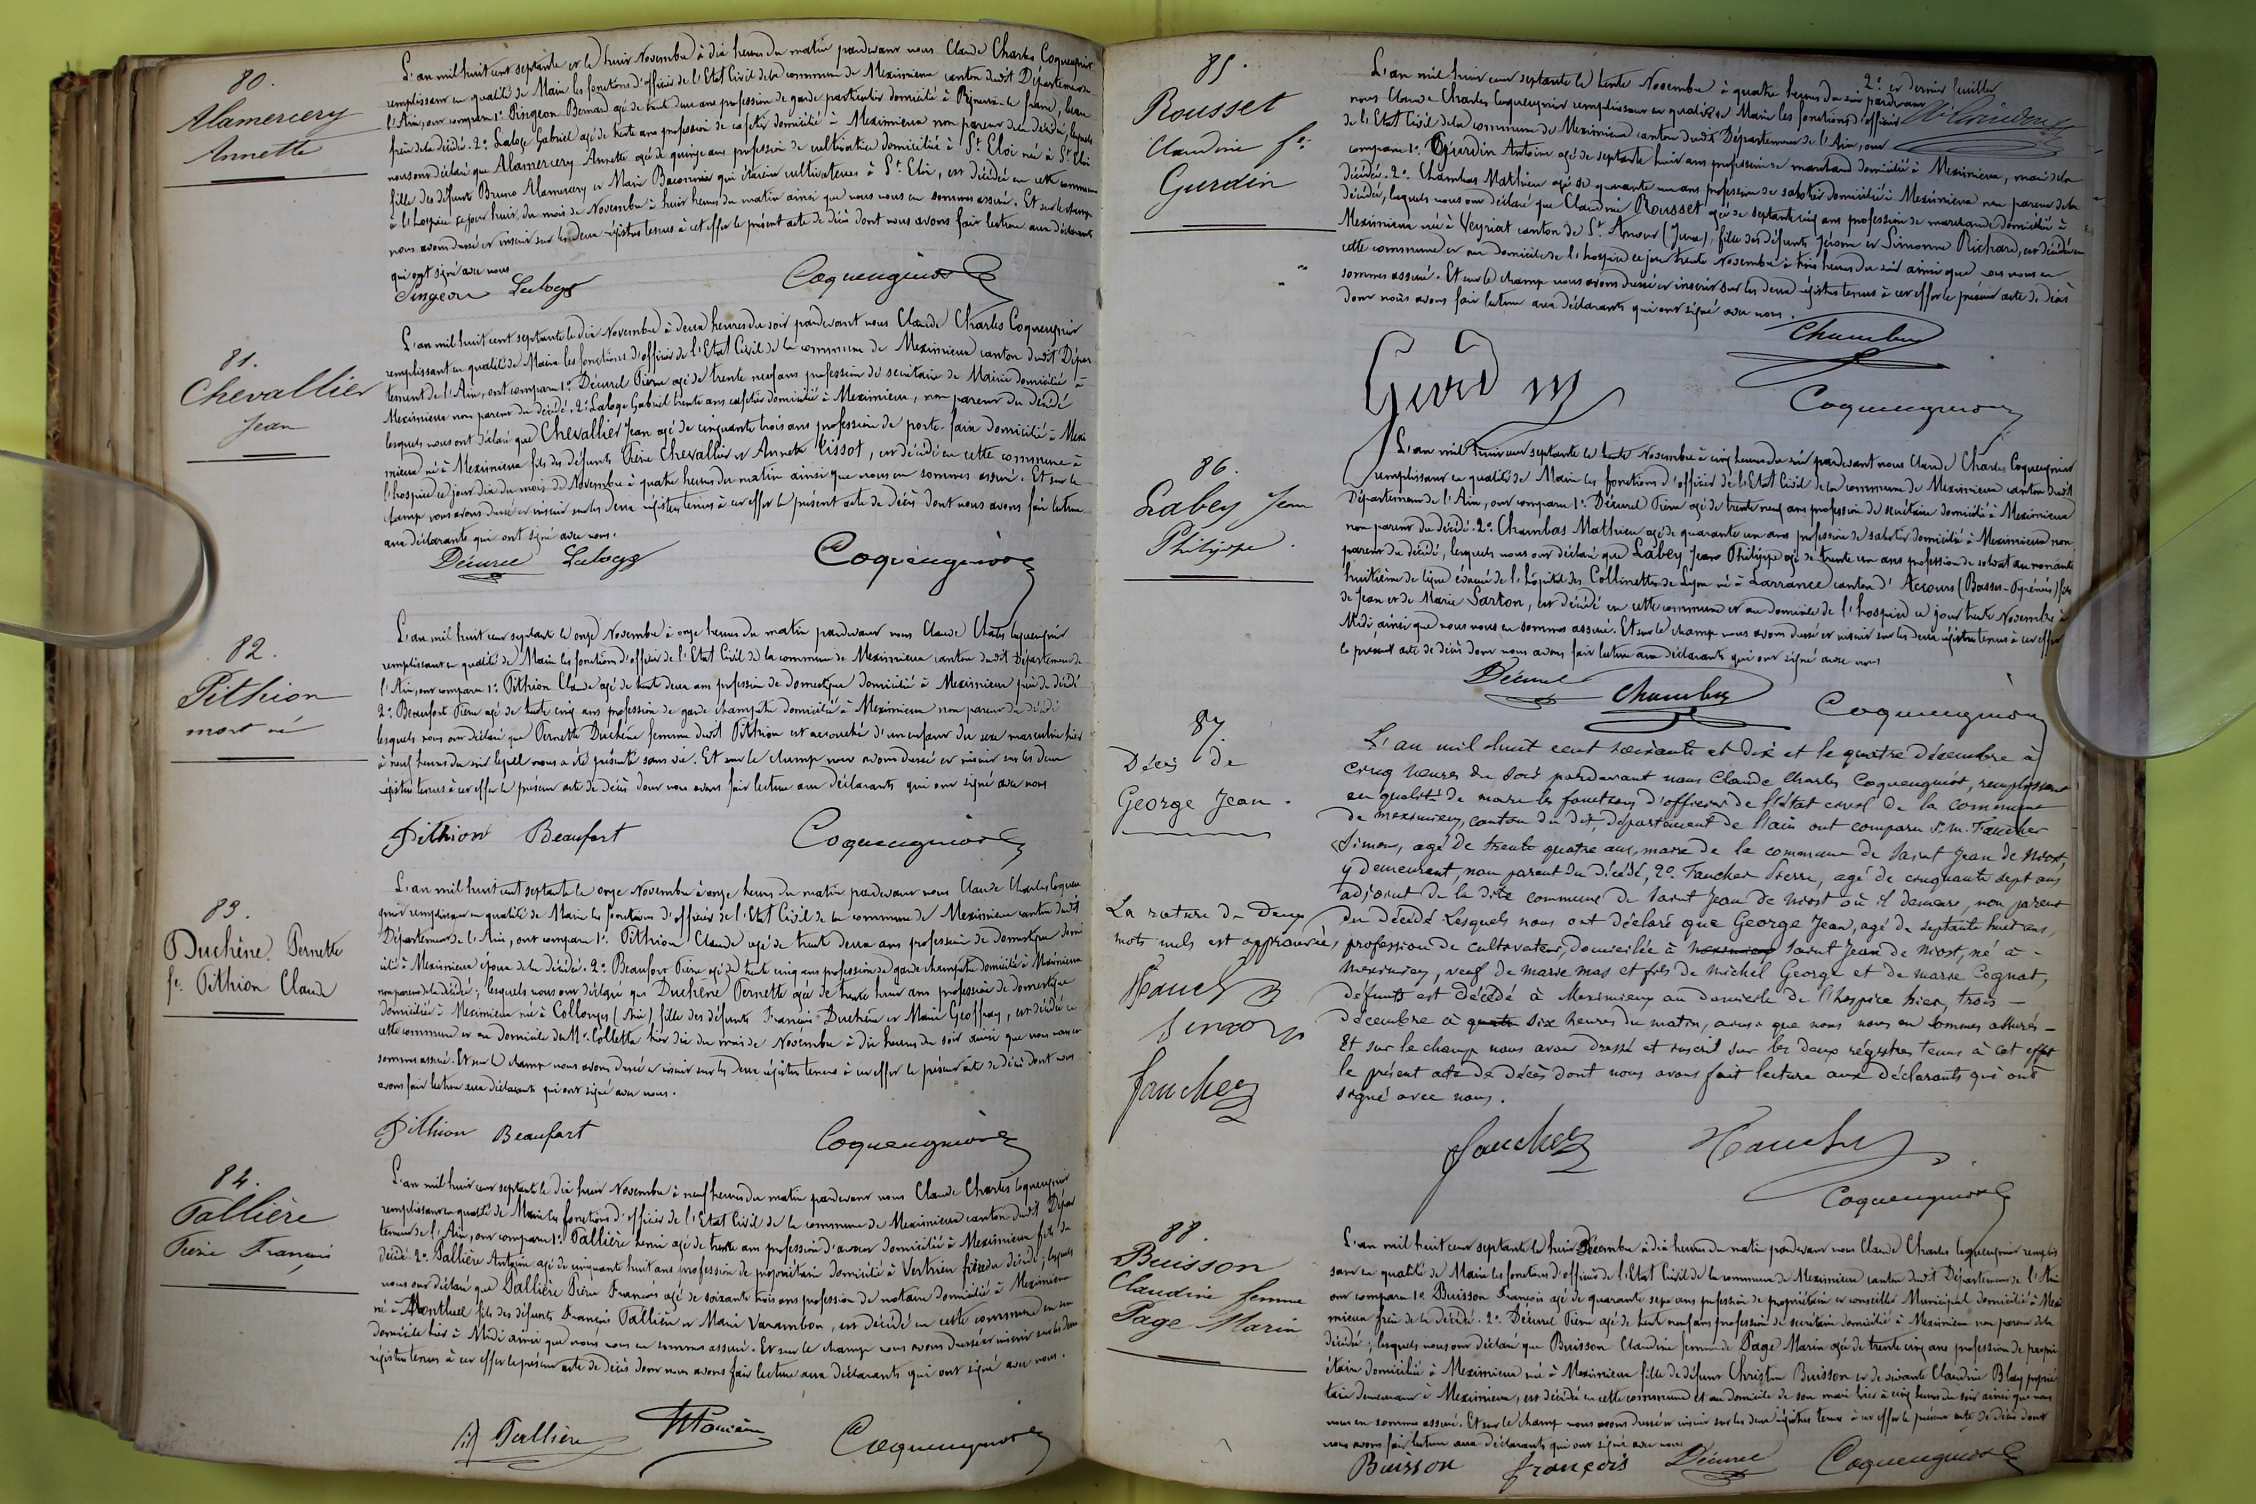 80.
Alamercery
Annette
L'an mil huit cent septante et le huit Novembre à dix heures du matin pardevant nous Claude Charles Coquengniot
remplissant en qualité de Maire les fonctions d'officier de l'Etat Civil de la commune de Meximieux canton dudit Département de
l'Ain, ont comparu 1º Pingeon Bernard agé de trente deux ans profession de garde particulier domicilié à
frère de la décédée. 2º Laloge Gabriel agé de trente ans profession de cafetier domicilié à Meximieux non parent de la décédée, lesquels
nous ont déclaré que Alamercery Annette agée de quinze ans profession de cultivatrice domiciliée à St Eloi née à St Eloi
fille des défunts Bruno Alamercery et Marie qui étaient cultivateurs à St Eloi, est décédée en cette commune
à l'hospice ce jour huit du mois de Novembre à huit heures du matin ainsi que nous nous en sommes assuré. Et sur le champ
nous avons dressé et inscrit sur les deux régistres tenus à cet effet le présent acte de décès dont nous avons fait lecture aux déclarants
qui ont signé avec nous
Pingeon Laloge Coquengniot
81.
Chevallier
Jean
L'an mil huit cent septante le dix Novembre à deux heures du soir pardevant nous Claude Charles Coquengniot
remplissant en qualité de Maire les fonctions d'officier de l'Etat Civil de la commune de Meximieux canton dudit Dépar
tement de l'Ain, ont comparu 1º Décurel Pierre agé de trente neuf ans profession de secrétaire de Mairie domicilié à
Meximieux non parent du décédé. 2º Laloge Gabriel trente ans cafetier domicilié à Meximieux, non parent du décédé
lesquels nous ont déclaré que Chevallier Jean agé de cinquante trois ans profession de porte-faix domicilié à Mexi
mieux né à Meximieux fils des défunts Pierre Chevallier et Annette Cissot, est décédé en cette commune à
l'hospice ce jour dix du mois de Novembre à quatre heures du matin ainsi que nous en sommes assuré. Et sur le
champ nous avons dressé et inscrit sur les deux régistres tenus à cet effet le présent acte de décès dont nous avons fait lecture
aux déclarants qui ont signé avec nous.
Décurel Laloge Coquengniot
82.
Pithion
mort né
L'an mil huit cent septante le onze Novembre à onze heures du matin pardevant nous Claude Charles Coquengniot
remplissant en qualité de Maire les fonctions d'officier de l'Etat Civil de la commune de Meximieux canton dudit Département de
l'Ain, ont comparu 1º Pithion Claude agé de trente deux ans profession de domestique domicilié à Meximieux père du décédé
2º Beaufort Pierre agé de trente cinq ans profession de garde champêtre domicilié à Meximieux non parent du décédé
lesquels nous ont déclaré que Pernette Duchêne femme dudit Pithion est accouchée d'un enfant du sexe masculin hier
à neuf heures du soir lequel nous a été présenté sans vie. Et sur le champ nous avons dressé et inscrit sur les deux
régistres tenus à cet effet le présent acte de décès dont nous avons fait lecture aux déclarants qui ont signé avec nous
Pithion Beaufort Coquengniot
83.
Duchêne Pernette
fe Pithion Claude
L'an mil huit cent septante le onze Novembre à onze heures du matin pardevant nous Claude Charles Coquen
gniot remplissant en qualité de Maire les fonctions d'officier de l'Etat Civil de la commune de Meximieux canton dudit
Département de l'Ain, ont comparu 1º Pithion Claude agé de trente deux ans profession de domestique domi
cilié à Meximieux époux de la décédée. 2º Beaufort Pierre agé de trente cinq ans profession de garde champêtre domicilié à Meximieux
non parent de la décédée; lesquels nous ont déclaré que Duchêne Pernette agée de trente huit ans profession de domestique
domiciliée à Meximieux née à Collonges (Ain) fille des défunts François Duchêne et Marie Geoffray, est décédée en
cette commune et au domicile de Mr Collette hier dix du mois de Novembre à dix heures du soir ainsi que nous nous en
sommes assuré. Et sur le champ nous avons dressé et inscrit sur les deux régistres tenus à cet effet le présent acte de décès dont nous
avons fait lecture aux déclarants qui ont signé avec nous.
Pithion Beaufort Coquengniot
84.
Pallière
Pierre François
L'an mil huit cent septante le dix huit Novembre à neuf heures du matin pardevant nous Claude Charles Coquengniot
remplissant en qualité de Maire les fonctions d'officier de l'Etat Civil de la commune de Meximieux canton dudit Dépar
tement de l'Ain, ont comparu 1º Pallière Henri agé de trente ans profession d'avocat domicilié à Meximieux fils du
décédé 2º Pallière Antoine agé de cinquante huit ans profession de propriétaire domicilié à Vertrieu frère du décédé; lesquels
nous ont déclaré que Pallière Pierre François agé de soixante trois ans profession de notaire domicilié à Meximieux
né à Montluel fils des défunts François Pallière et Marie Varambon, est décédé en cette commune en son
domicile hier à Midi ainsi que nous nous en sommes assuré. Et sur le champ nous avons dressé et inscrit sur les deux
régistres tenus à cet effet le présent acte de décès dont nous avons fait lecture aux déclarants qui ont signé avec nous.
Pallière Coquengniot
85.
Rousset
Claudine fe
Gurdin
2º et dernier feuillet
L'an mil huit cent septante le trente Novembre à quatre heures du soir pardevant
nous Claude Charles Coquengniot remplissant en qualité de Maire les fonctions d'officier
de l'Etat Civil de la commune de Meximieux canton dudit Département de l'Ain, ont
comparu 1º Gurdin Antoine agé de septante huit ans profession de marchand domicilié à Meximieux, mari de la
décédée. 2º Chambas Mathieu agé de quarante un ans profession de sabotier domicilié à Meximieux non parent de la
décédée, lesquels nous ont déclaré que Claudine Rousset agée de septante cinq ans profession de marchande domiciliée à
Meximieux née à Veyriat canton de St Amour (Jura), fille des défunts Jérome et Simonne Richard, est décédée en
cette commune et au domicile de l'hospice ce jour trente Novembre à trois heures du soir ainsi que nous nous en
sommes assuré. Et sur le champ nous avons dressé et inscrit sur les deux régistres tenus à cet effet le présent acte de décès
dont nous avons fait lecture aux déclarants qui ont signé avec nous.
Chambas
Gurdin
Coquengniot
86.
Labey Jean
Philippe.
L'an mil huit cent septante le trente Novembre à cinq heures du soir pardevant nous Claude Charles Coquengniot
remplissant en qualité de Maire les fonctions d'officier de l'Etat Civil de la commune de Meximieux canton dudit
Département de l'Ain, ont comparu 1º Décurel Pierre agé de trente neuf ans profession de secrétaire domicilié à Meximieux
non parent du décédé. 2º Chambas Mathieu agé de quarante un ans profession de sabotier domicilié à Meximieux non
parent du décédé, lesquels nous ont déclaré que Labey Jean Philippe agé de trente un ans profession de soldat au nonante
huitième de ligne évacué de l'hôpital des Collinettes de Lyon né à Larrance canton d'Accours (Basses-Pyrénées) fils
de Jean et de Marie Sarton, est décédé en cette commune et au domicile de l'hospice ce jour trente Novembre à
Midi, ainsi que nous nous en sommes assuré. Et sur le champ nous avons dressé et inscrit sur les deux régistres tenus à cet effet
le présent acte de décès dont nous avons fait lecture aux déclarants qui ont signé avec nous
Décurel Chambas Coquengniot
87.
Décès de
George Jean.
L'an mil huit cent soixante et dix et le quatre décembre à
cinq heures du soir pardevant nous Claude Charles Coquengniot, remplissant
en qualité de maire les fonctions d'officier de l'état civil de la commune
de meximieux, canton du dit, département de l'ain ont comparu 1º m. Faucher
Simon, agé de trente quatre ans, maire de la commune de Saint Jean de Niost,
y demeurant, non parent du décédé, 2º Faucher Pierre, agé de cinquante sept ans
adjoint de la dite commune de Saint Jean de Niost où il demeure, non parent
du décédé Lesquels nous ont déclaré que George Jean, agé de septante huit ans,
profession de cultivateur, domicilié à meximieux Saint Jean de Niost, né à
meximieux, veuf de marie mas et fils de michel George et de marie Cognat,
défunts est décédé à Meximieux au domicile de l'hospice hier, trois
décembre à quatre six heures du matin, ainsi que nous nous en sommes assurés
Et sur le champ nous avons dressé et inscrit sur les deux régistres tenus à cet effet
le présent acte de décès dont nous avons fait lecture aux déclarants qui ont
signé avec nous.
La rature de deux
mots nuls est approuvée
Faucher
Faucher Faucher
Coquengniot
88.
Buisson
Claudine femme
Page Marin
L'an mil huit cent septante le huit Décembre à dix heures du matin pardevant nous Claude Charles Coquengniot remplis
sant en qualité de Maire les fonctions d'officier de l'Etat Civil de la commune de Meximieux canton dudit Département de l'Ain
ont comparu 1º Buisson François agé de quarante sept ans profession de propriétaire et conseiller Municipal domicilié à Mexi
mieux frère de la décédée. 2º Décurel Pierre agé de trente neuf ans profession de secrétaire domicilié à Meximieux non parent de la
décédée; lesquels nous ont déclaré que Buisson Claudine femme de Page Marin agée de trente cinq ans profession de propri
étaire domiciliée à Meximieux née à Meximieux fille de défunt Christin Buisson et de vivante Claudine Blanc proprié
taire demeurant à Meximieux, est décédée en cette commune et au domicile de son mari hier à cinq heures du soir ainsi que nous
nous en sommes assuré. Et sur le champ nous avons dressé et inscrit sur les deux régistres tenus à cet effet le présent acte de décès dont
nous avons fait lecture aux déclarants qui ont signé avec nous
Buisson françois Décurel Coquengniot